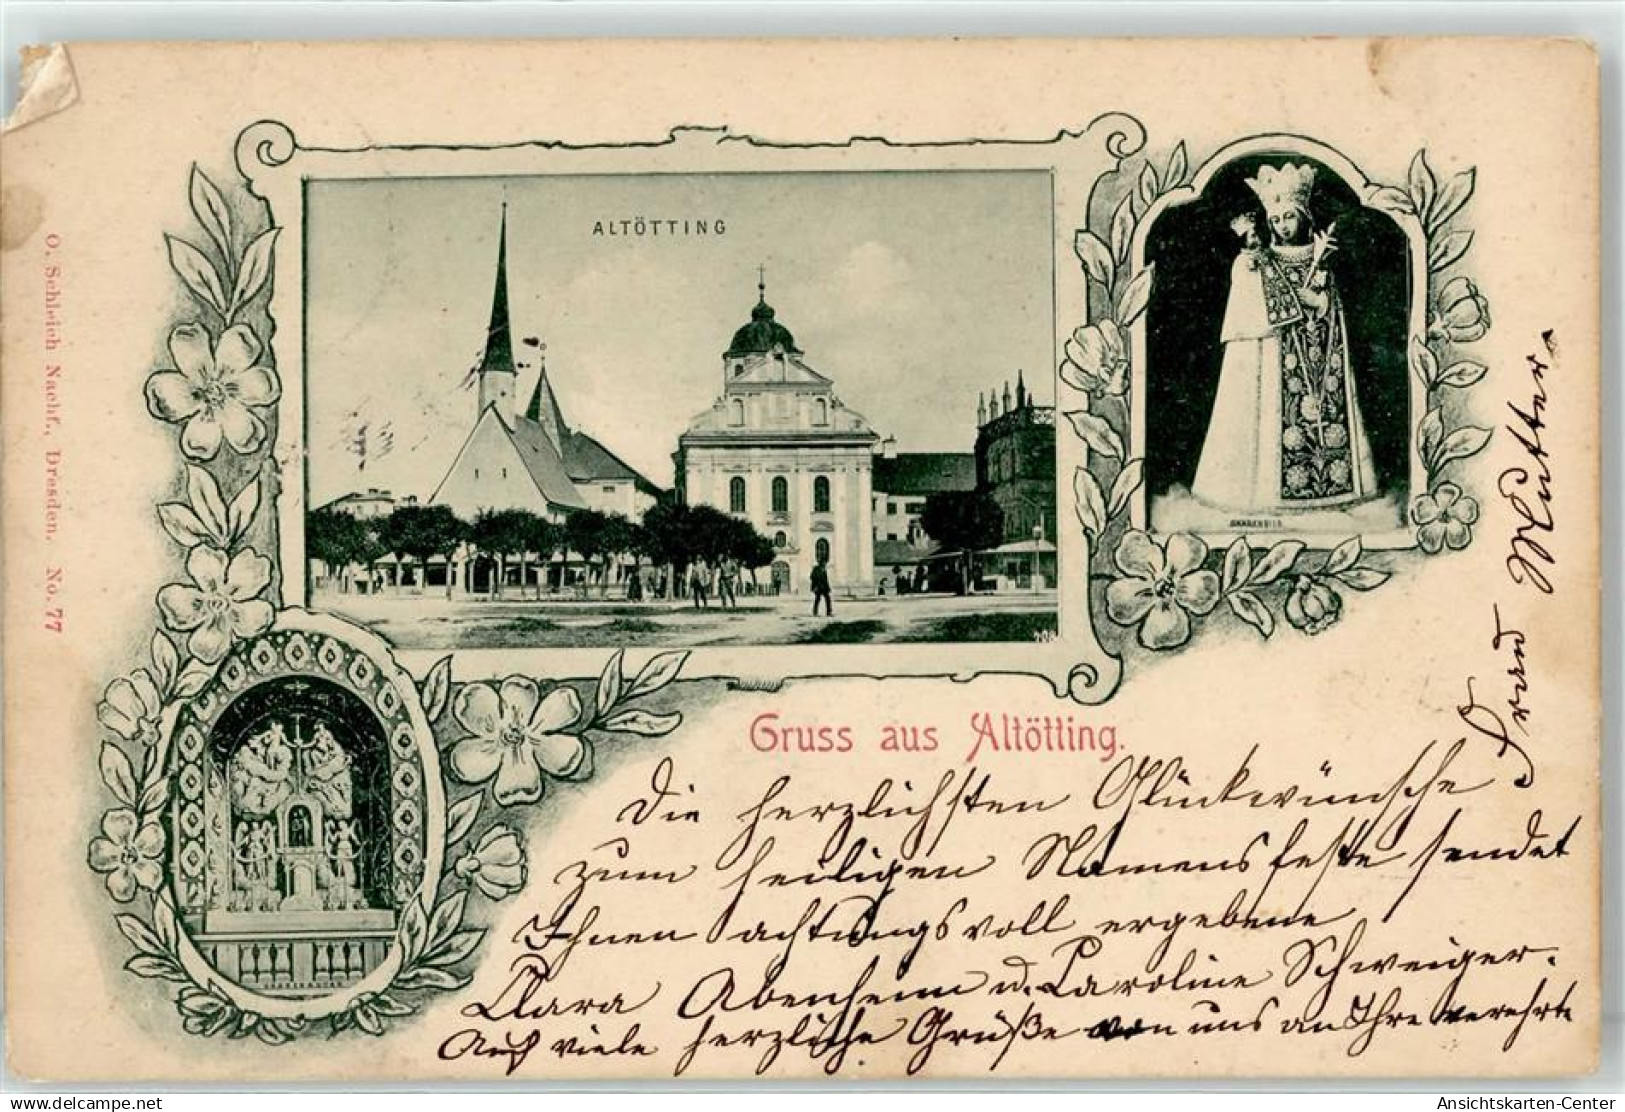 ALTÖTTING
GNADENBILD
708
Gruss aus Altötting.
O. Schleich Nachf., Dresden. No. 77
Die herzlichsten Glückwünsche
zum heiligen Namensfeste sendet
Ihnen achtungsvoll ergebene
Clara Abenheim u. Caroline Schweiger.
Auch viele herzliche Grüße von uns an Ihre verehrte
Frau Mutter.
delcampe.net
Ansichtskarten-Center